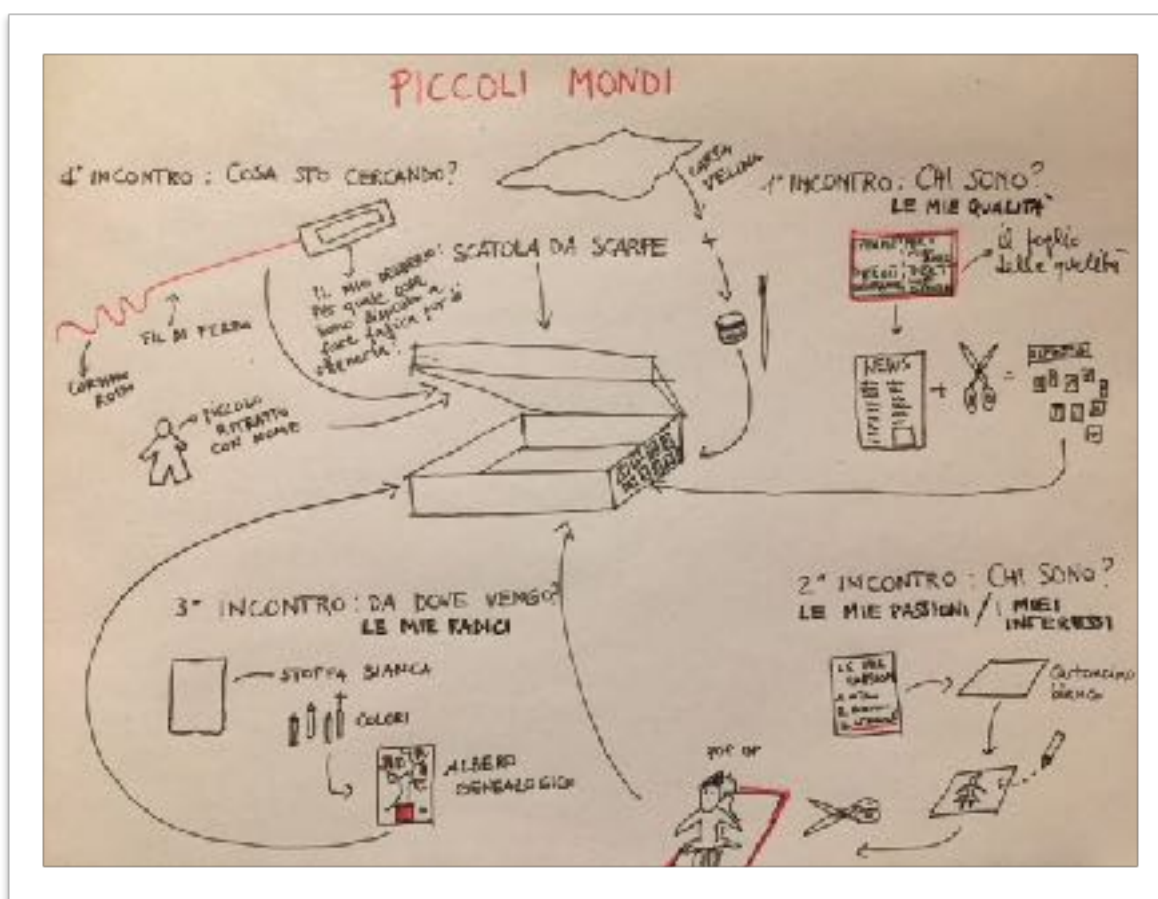 PICCOLI MONDI
4° INCONTRO: COSA STO CERCANDO?
CARTA
VELINA
1° INCONTRO: CHI SONO?
LE MIE QUALITA'
il foglio
delle qualità
SCATOLA DA SCARPE
IL MIO DESIDERIO:
FIL DI FERRO
ROSSO
PICCOLO
RITRATTO
CON NOME
NEWS
+
+
=
3° INCONTRO: DA DOVE VENGO?
LE MIE RADICI
STOFFA BIANCA
COLORI
ALBERO
GENEALOGICO
2° INCONTRO: CHI SONO?
LE MIE PASSIONI / I MIEI
INTERESSI
LE MIE
PASSIONI
cartoncino
bianco
POP UP